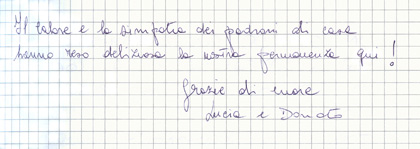 Il calore e la simpatia dei padroni di casa
hanno reso deliziosa la nostra permanenza qui!
Grazie di cuore
Lucia e Donato